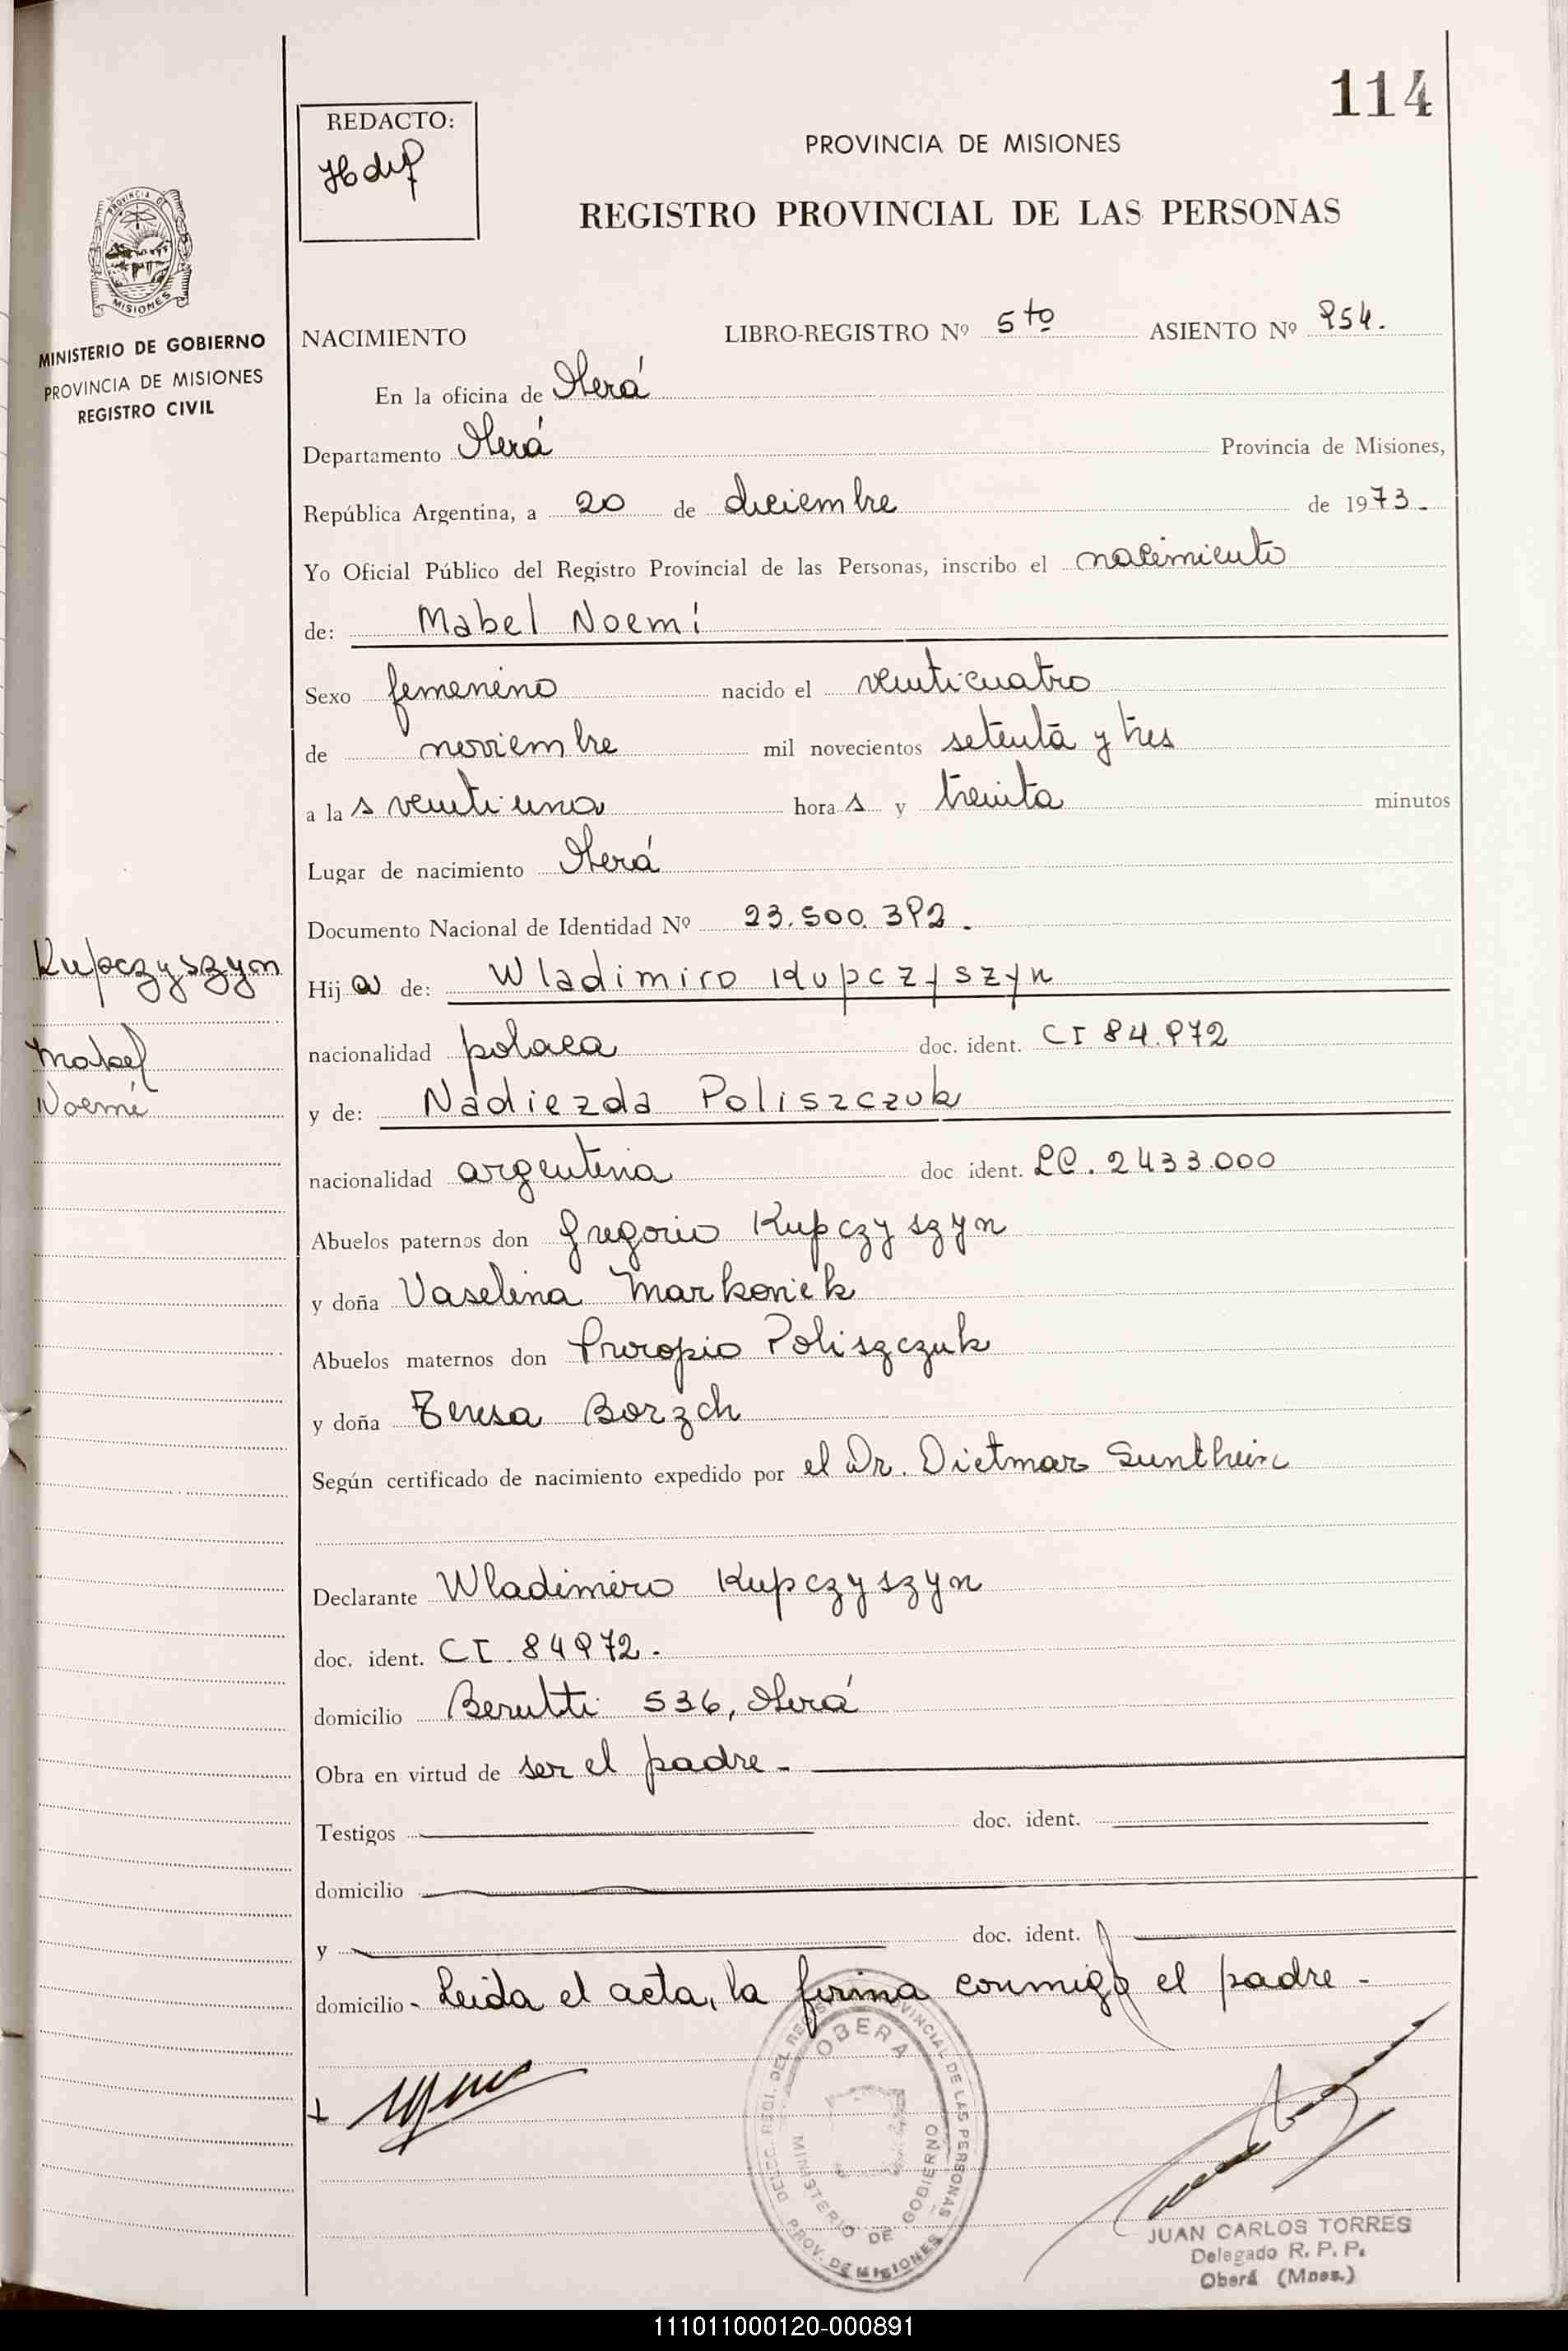 114
REDACTO:
PROVINCIA DE MISIONES
REGISTRO PROVINCIAL DE LAS PERSONAS
PROVINCIA DE
MISIONES
MINISTERIO DE GOBIERNO
PROVINCIA DE MISIONES
REGISTRO CIVIL
NACIMIENTO LIBRO-REGISTRO Nº 5to ASIENTO Nº 954.
En la oficina de Oberá
Departamento Oberá Provincia de Misiones,
República Argentina, a 20 de diciembre de 1973.
Yo Oficial Público del Registro Provincial de las Personas, inscribo el nacimiento
de: Mabel Noemí
Sexo femenino nacido el veinticuatro
de noviembre mil novecientos setenta y tres
a las veintiuna horas y treinta minutos
Lugar de nacimiento Oberá
Documento Nacional de Identidad Nº 23.500.392.
Kupczyszyn
Mabel
Noemí
Hija de: Wladimiro Kupczyszyn
nacionalidad polaca doc. ident. CI 84.972
y de: Nadiezda Poliszczuk
nacionalidad argentina doc ident. LC. 2433.000
Abuelos paternos don Gregorio Kupczyszyn
y doña Vaselina Markoniek
Abuelos maternos don Procopio Poliszczuk
y doña Teresa Borzch
Según certificado de nacimiento expedido por el Dr. Dietmar
Declarante Wladimiro Kupczyszyn
doc. ident. CI. 84972.
domicilio Berutti 536, Oberá
Obra en virtud de ser el padre-
Testigos doc. ident.
domicilio
y doc. ident.
domicilio- Leida el acta, la firma conmigo el padre-
DELEG. REGI. DEL REGISTRO PROVINCIAL DE LAS PERSONAS
OBERA
MINISTERIO DE GOBIERNO
PROV. DE MISIONES
JUAN CARLOS TORRES
Delegado R. P. P.
Oberá (Mnes.)
111011000120-000891